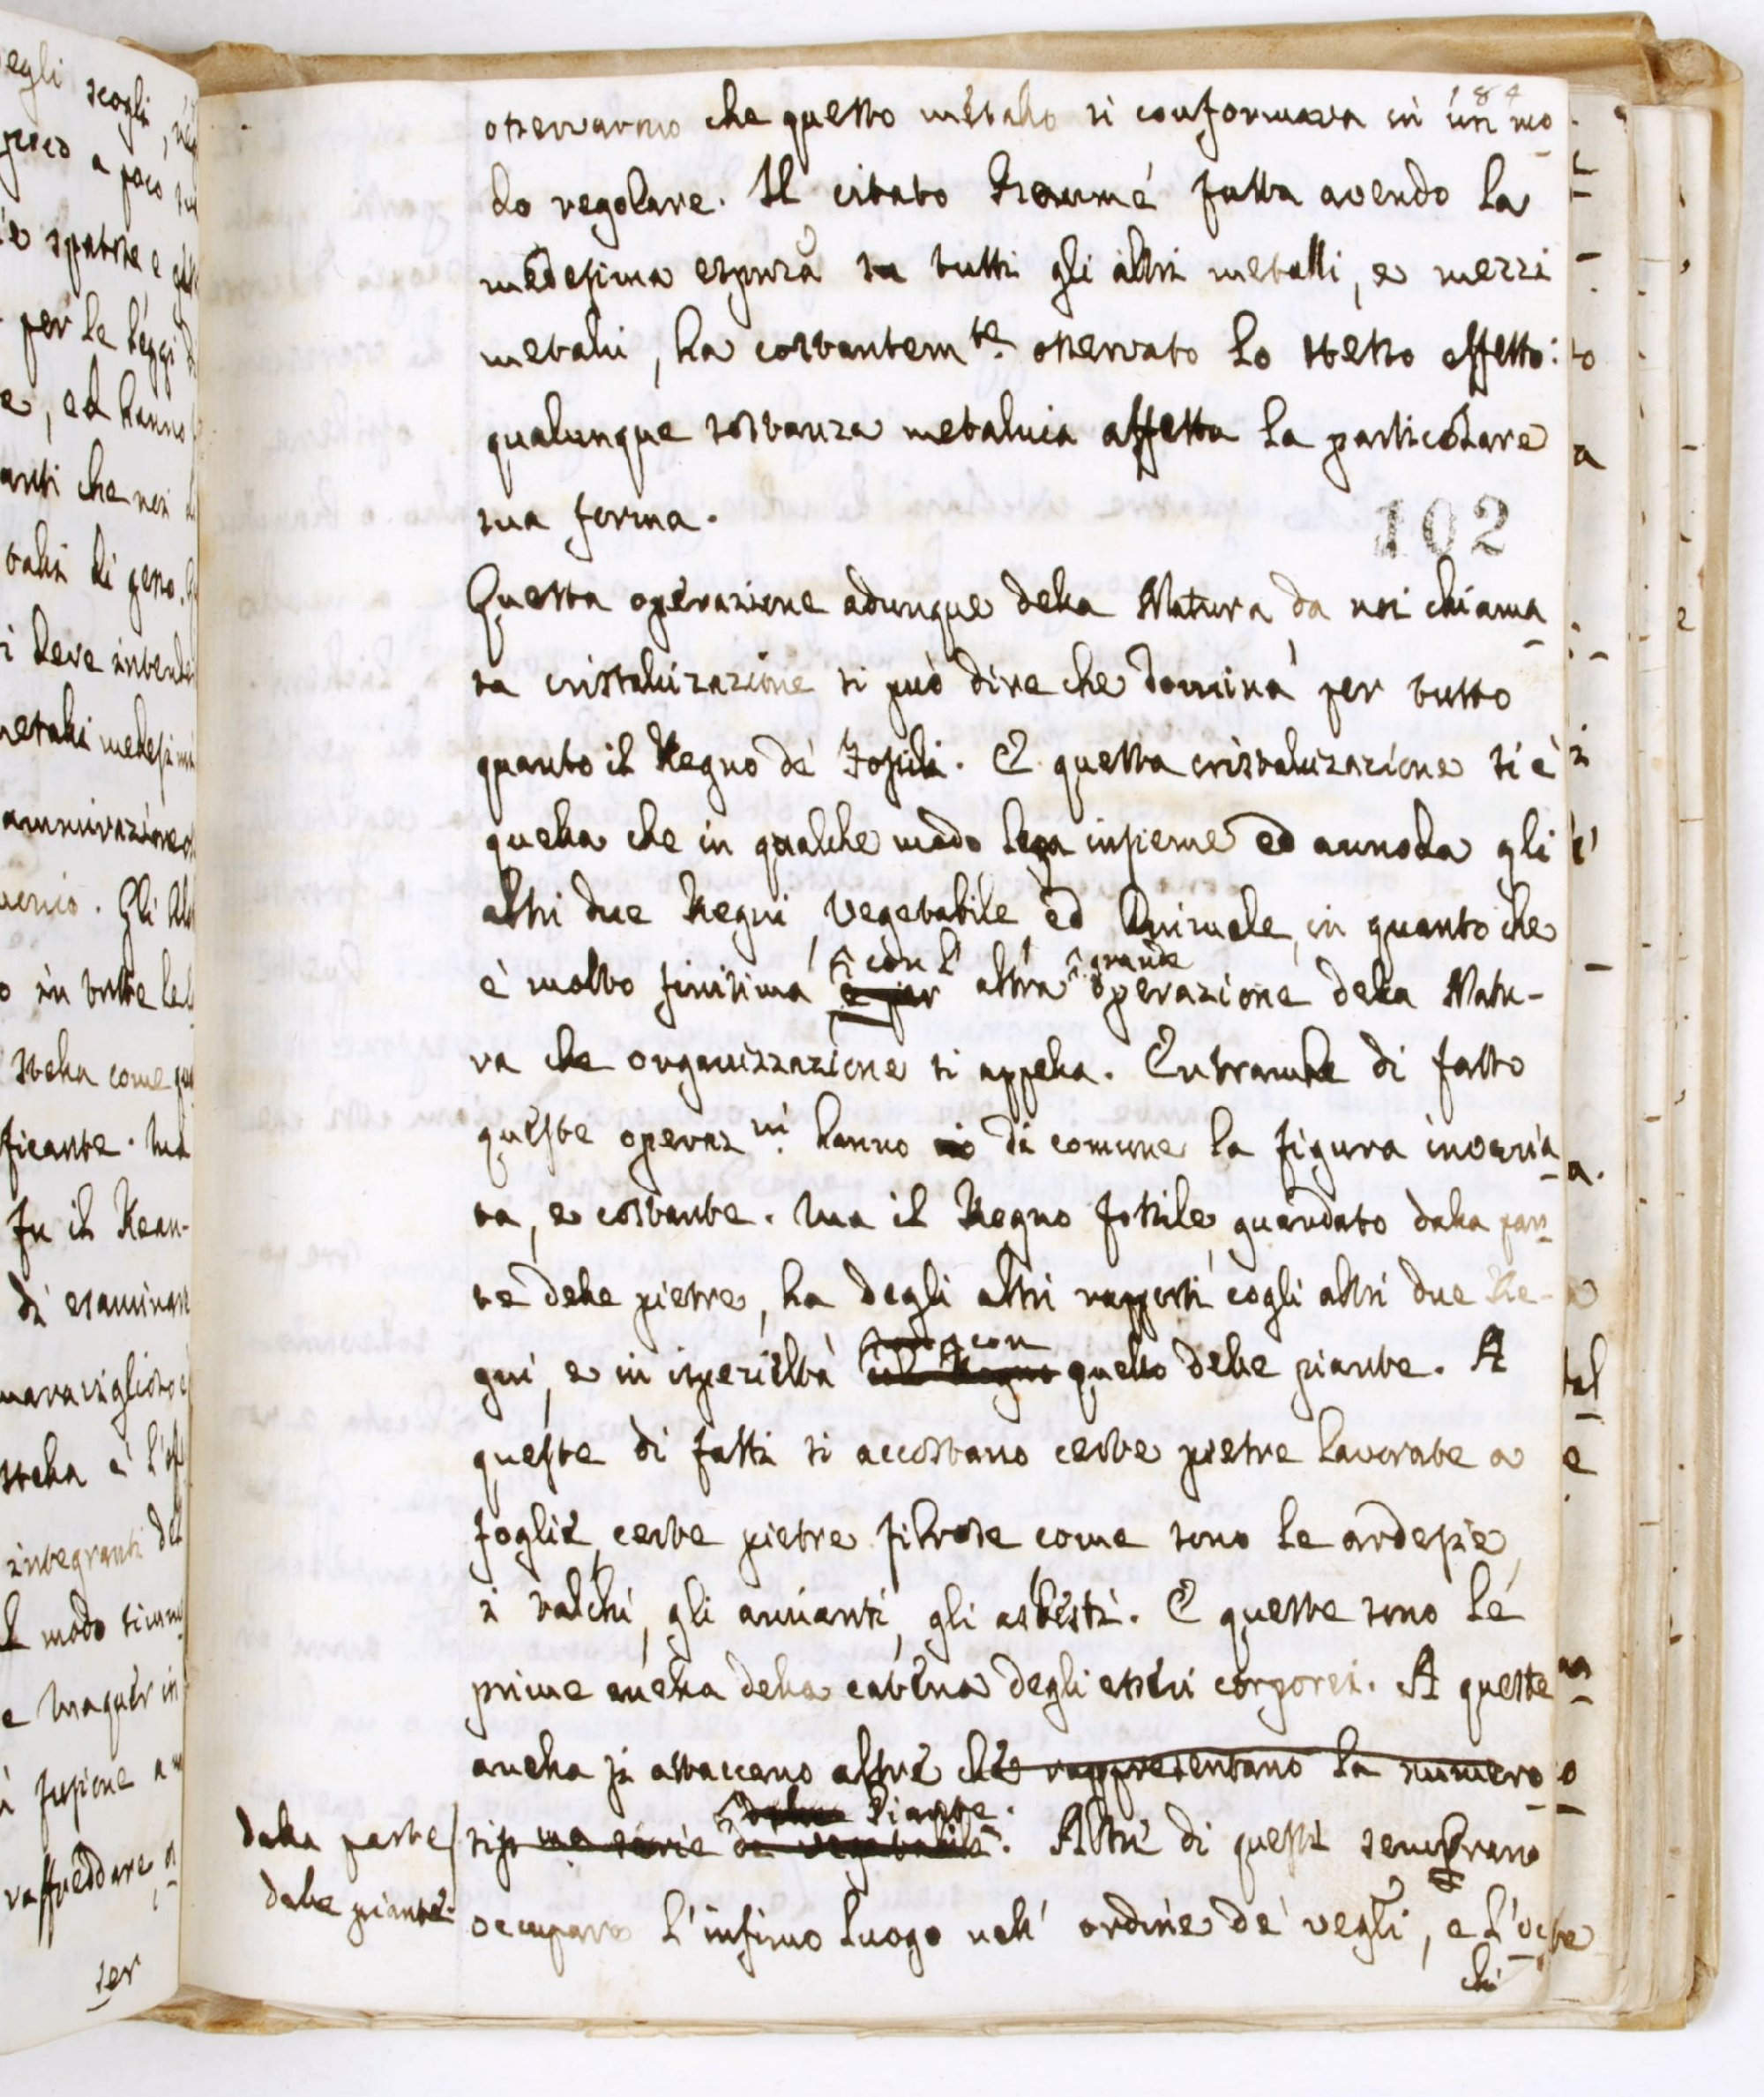 184
osservarono che questo metallo si conformava in un mo
do regolare. Il citato Reaumé fatta avendo la
medesima esprza su tutti gli altri metalli, e mezzi
metalli, ha costantemte. osservato lo stesso effetto:
qualunque sostanza metallica affetta la particolare
sua forma.
102
Questa operazione adunque della Natura da noi chiama
ta cristallizazione si può dire che domina per tutto
quanto il Regno de' Fossili. E questa cristallizazione si è
quella che in qualche modo lega insieme ed annoda gli
altri due Regni, Vegetabile, ed Animale, in quanto che
con l' grande
è molto finitima e per altra operazione della Natu-
ra che organizzazione si appella. Entrambe di fatto
queste operazni. hanno di comune la figura
ta, e costante. Ma il Regno fossile, guardato dalla par
te delle pietre, ha degli altri rapporti cogli altri due Re-
con
gni, e in ispezieltà il Regno quello delle piante. A
queste di fatti si accostano certe pietre lavorate a
foglie, certe pietre fibrose come sono le ardesie,
i talchi, gli amianti, gli asbesti. E queste sono le
prime anella della catena degli esseri corporei. A queste
anella si attaccano altre che rappresentano la numero
Piante.
dalla parte
sissma serie de vegetabili. Altri di questi sembrano
delle piante.
occupare l'infimo luogo nell' ordine de' vegli, e l'
chi
egli scogli,
poco a poco
per le leggi
e, ed hanno
anti che noi
si deve
metalli medesimi
Gli
stella come
ficante. Ma
fu il Reau-
di esaminare
maraviglioso
stella è
integranti
modo
e Maquer in
fusione a
raffreddare,
ser